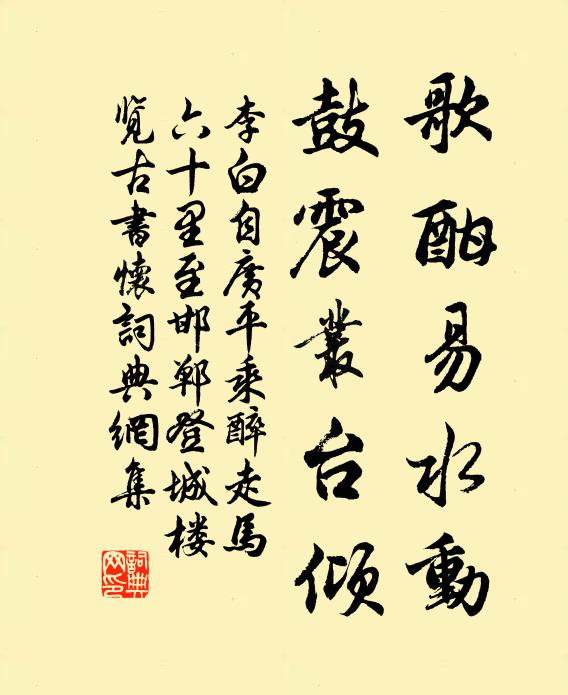 歌酣易水動
鼓震叢台傾
李白自廣平乘醉走馬
六十里至邯鄲登城楼
覽古書懷詞典網集
詞典
网印